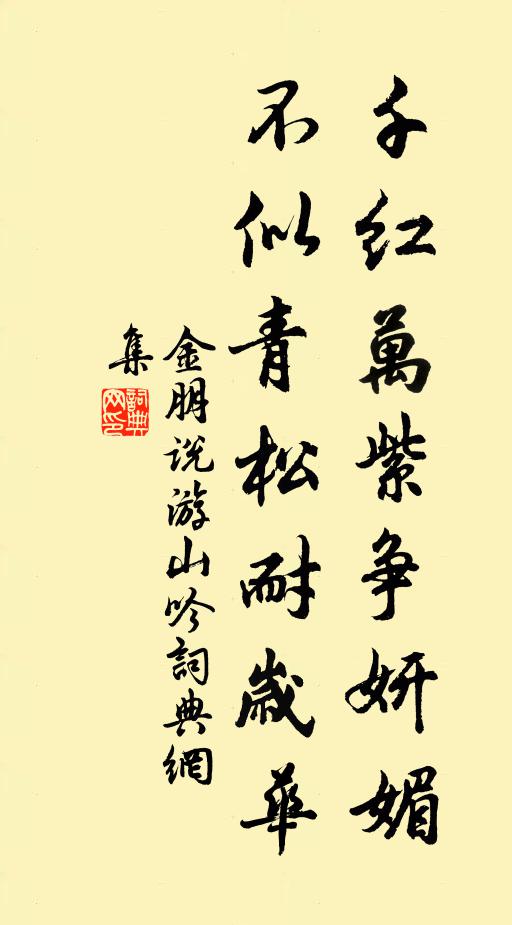 千红萬紫争妍媚
不似青松耐歲華
金朋说游山吟詞典網
集
詞典
网印